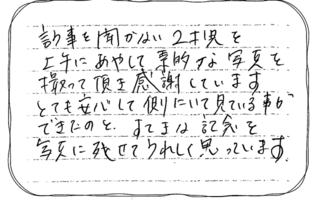 訁事を聞かない2才児を
上手にあやして素的な写真を
撮って頂き感謝しています
とても安心して側にいて見ている事が
できたのと、すてきな記念を
写真に残せてうれしく思っています。